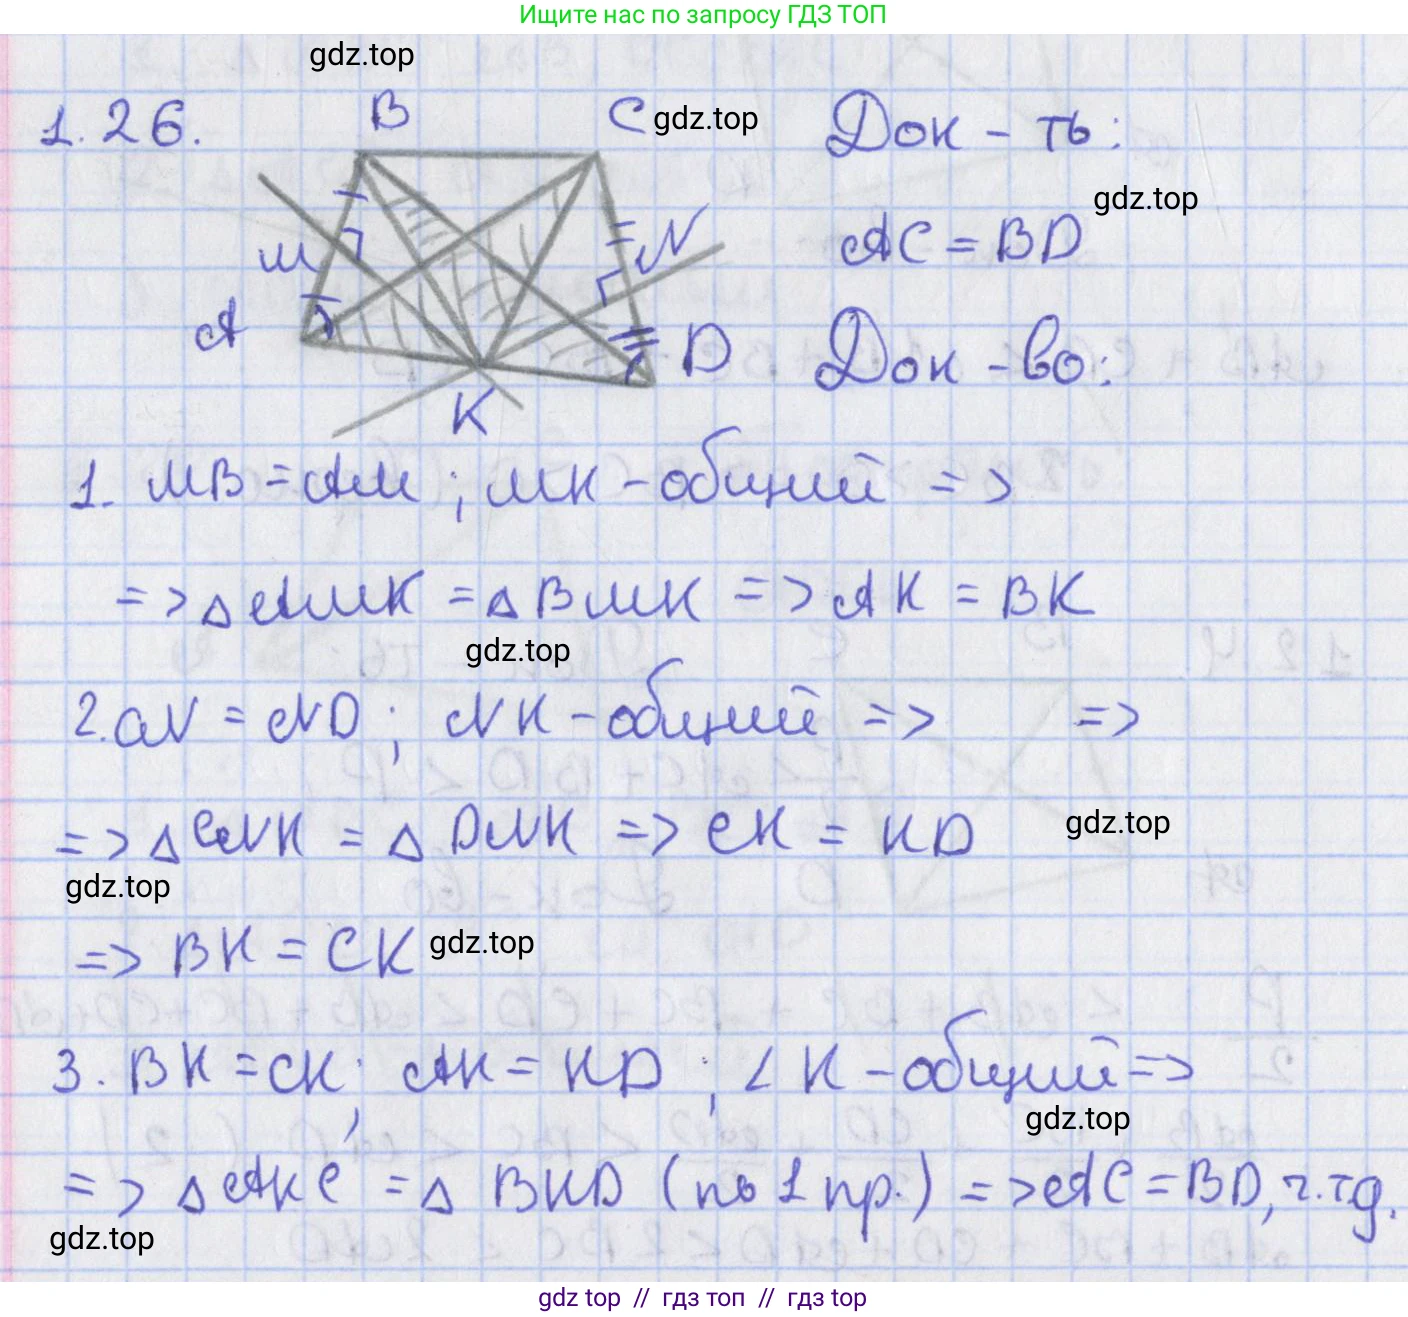 Ищите нас по запросу ГДЗ ТОП
gdz.top
1.26.
B
C
gdz.top
Док-ть:
gdz.top
M
N
AC = BD
A
D
Док-во:
K
1. MB = AM; MK - общий =>
=> △ AMK = △ BMK => AK = BK
gdz.top
2. CN = ND; NK - общий => =>
=> △ CNK = △ DNK => CK = KD
gdz.top
gdz.top
=> BK = CK
gdz.top
3. BK = CK; AK = KD; ∠K - общий =>
gdz.top
=> △ AKC = △ BKD (по 1 пр.) => AC = BD, ч.т.д.
gdz.top
gdz top // гдз топ // гдз top